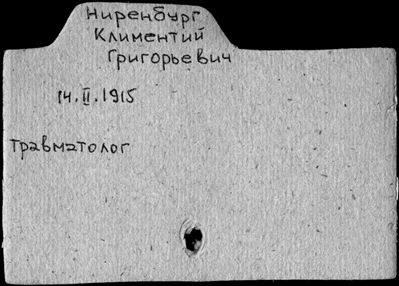 Ниренбург
Климентий
Григорьевич
14.II.1915
травматолог